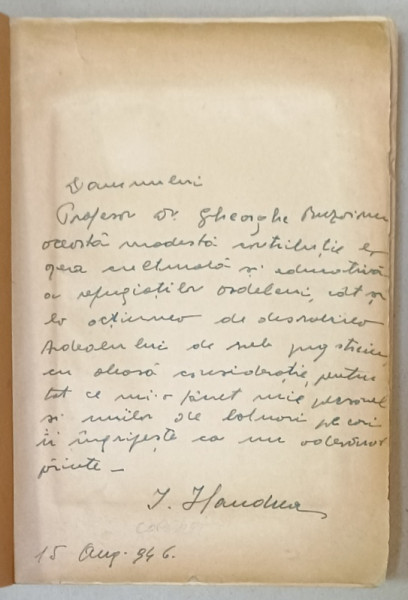 Domnului
Profesor Dr. Gheorghe Buzoianu
această modestă contribuție la
opera culturală și educativă
a refugiaților ardeleni, cât și
la acțiunea de desrobirea
Ardealului de sub jug străin,
cu aleasă considerație, pentru
tot ce mi-a făcut mie personal
și miilor de bolnavi pe cari
îi îngrijește ca un adevărat
părinte –
I. Handrea
15 Aug. 946.